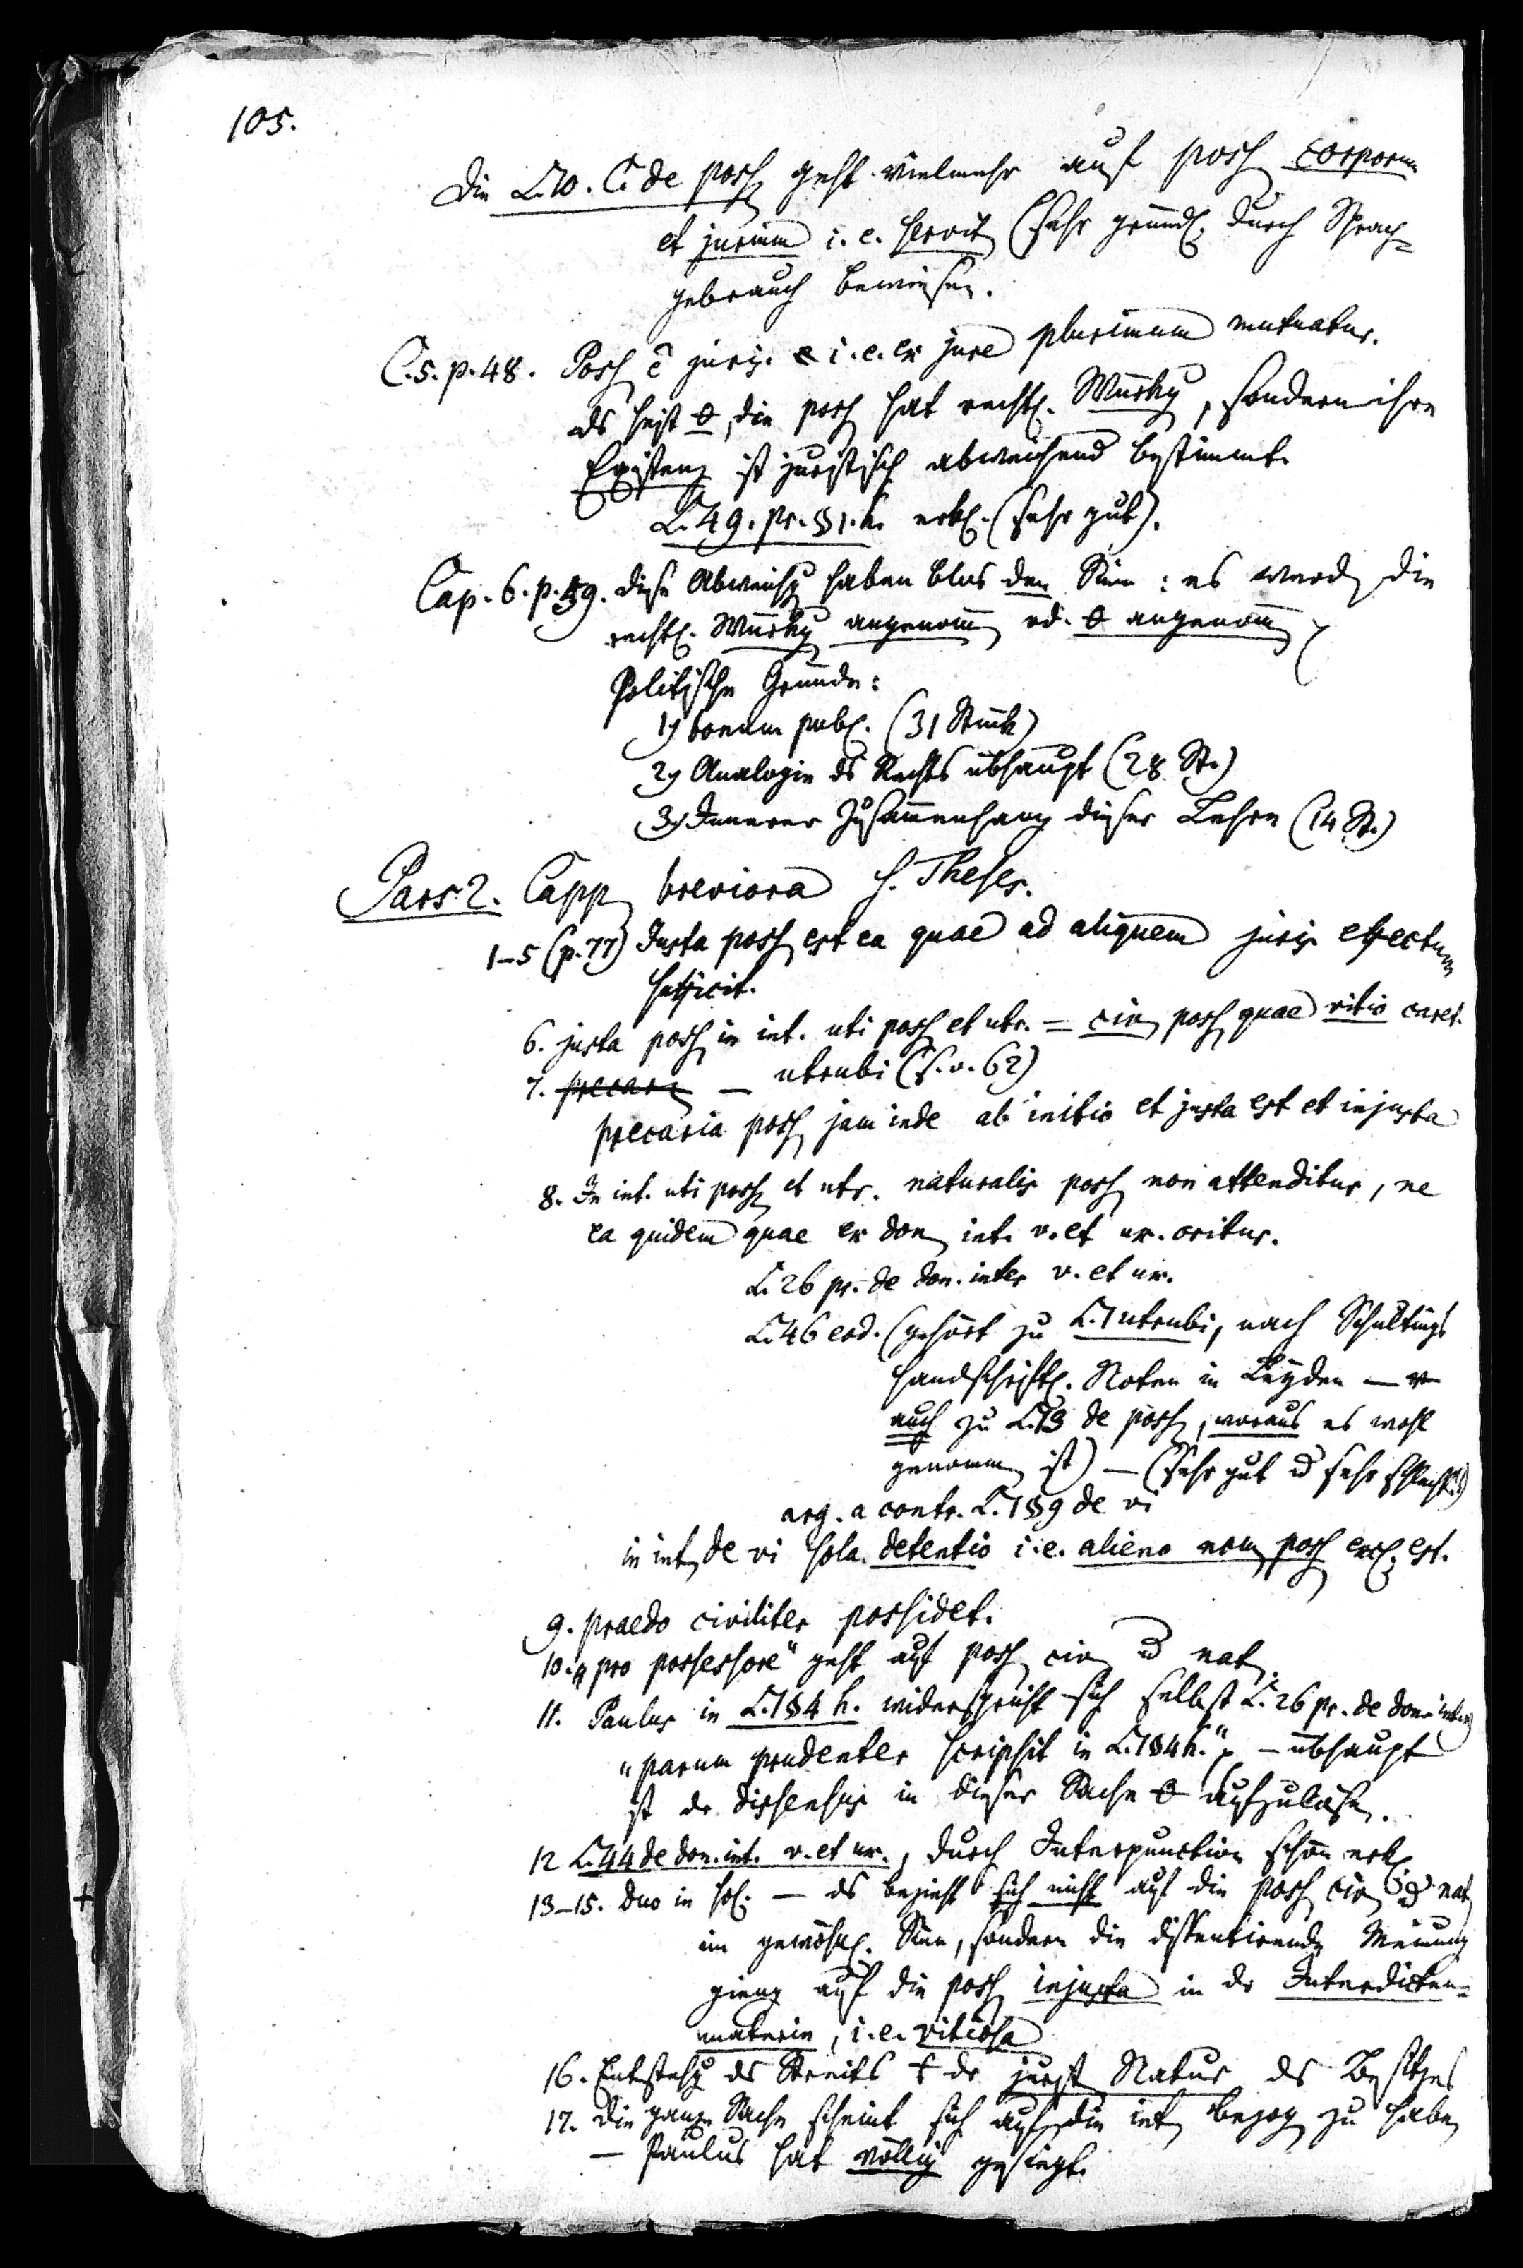 105.
Die L. 10. C. de poss geht vielmehr auf poss corporum
et jurium i. e. servit (sehr gründl. durch Sprach=
gebrauch bewiesen.
C. 5. p. 48. Poss ē juris. i. e. ex jure plurimum mutuatur.
ds heist die poss hat rechtl. Würkg, sondern ihre
Existenz ist juristisch abweichend bestimmt.
L. 49. pr. §1. h. erkl. (sehr gut).
Cap. 6. p. 59. diese Abweichg haben blos den Sinn: es werd die
rechtl. Würkg angenom̄ od. angenom̄
Politische Gründe:
1) bonum publ. (31 Stück)
2) Analogie ds Rechts übhaupt (28 St.)
3) Innerer Zusam̄enhang dieser Lehre (14 St.)
Pars 2. Capp breviora s. Theses.
1–5 (p. 77) Justa poss est ea quae ad aliquem juris effectum
sufficit.
6. justa poss in int. uti poss et utr. = civ poss quae vitio caret.
7. precar — utrubi (S. o. 62)
precaria poss jam inde ab initio et justa est et injusta
8. In int. uti poss et utr. naturalis poss non attenditur, ne
ea quidem quae ex don int. v. et ux. oritur.
L. 26 pr. de don. inter v. et ux.
L. 46 eod. (gehört zu L. 1 utrubi, nach Schultings
handschriftl. Noten in Leyden —
auch zu L. 13 de poss, woraus es wohl
genomm ist) — (Sehr gut u sehr schlecht!)
arg. a contr. L. 1 §9 de vi
in int de vi sola detentio i. e. alieno nom poss excl. est.
9. praedo civiliter possidet.
10. „pro possessore" geht auf poss civ u nat.
11. Paulus in L. 1 §4 h. widerspricht sich selbst L. 26 pr. de don. inter
„parum prudenter scripsit in L. 1 §4 h." — übhaupt
ist dr dissensus in dieser Sache aufzulösen.
12 L. 44 de don. int. v. et ux., durch Interpunction schön erkl
13–15. duo in sol. — ds bezieht sich nicht auf die poss civ u nat
im gewöhnl. Sinn, sondern die dissentirende Meinung
gieng auf die poss injusta in dr Interdicten=
materie, i. e. vitiosa
16. Entstehg ds Streits dr jurist Natur ds Besitzes
17. Die ganze Sache scheint sich auf die int bezog zu habn
— Paulus hat völlig gesiegt.